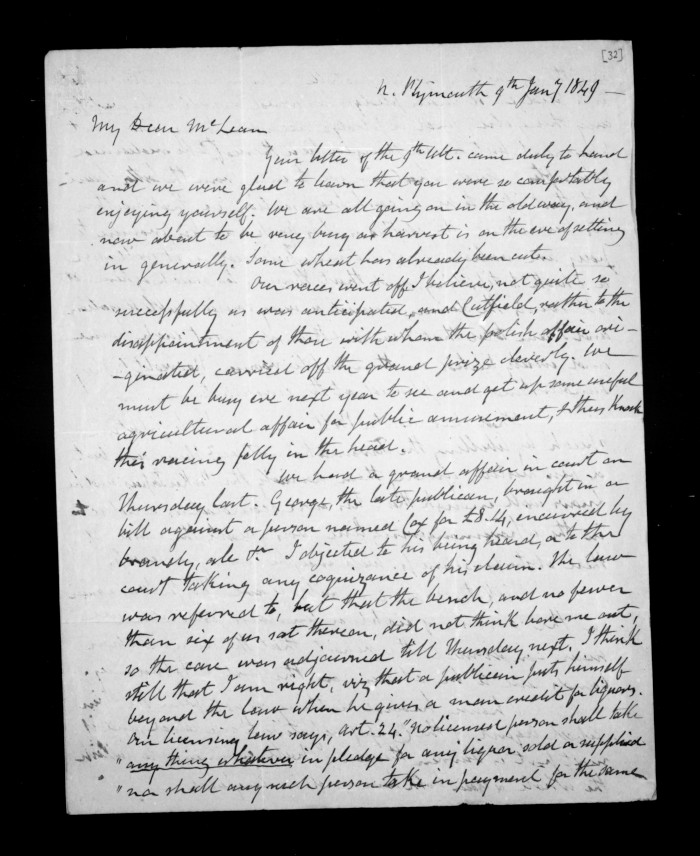 [32]
N. Plymouth 9th Jany 1849 —
My Dear McLean
Your letter of the 9th Ult. came duly to hand
and we were glad to learn that you were so comfortably
enjoying yourself. We are all going on in the old way, and
now about to be very busy as harvest is on the eve of setting
in generally. Some wheat has already been cut.
Our races went off I believe, not quite so
successfully as was anticipated, and Cutfield, rather to the
disappointment of those with whom the foolish affair ori-
-ginated, carried off the grand prize cleverly. We
must be busy ere next year to see and get up some useful
agricultural affair for public amusement, & thus Knock
this racing folly in the head.
We had a grand affair in court on
Thursday last. George, the late publican, brought in a
bill against a person named Cox for £8.14, incurred by
brandy, ale &c. I objected to his being heard, or to the
court taking any cognizance of his claim. The law
was referred to, but that the bench, and no fewer
than six of us sat thereon, did not think bore me out,
so the case was adjourned till Thursday next. I think
still that I am right, viz that a publican puts himself
beyond the law when he gives a man credit for liquors.
Our licensing law says, art. 24. "No licensed person shall take
" any thing whatever in pledge for any liquor sold or supplied
" nor shall any such person take in payment for the same